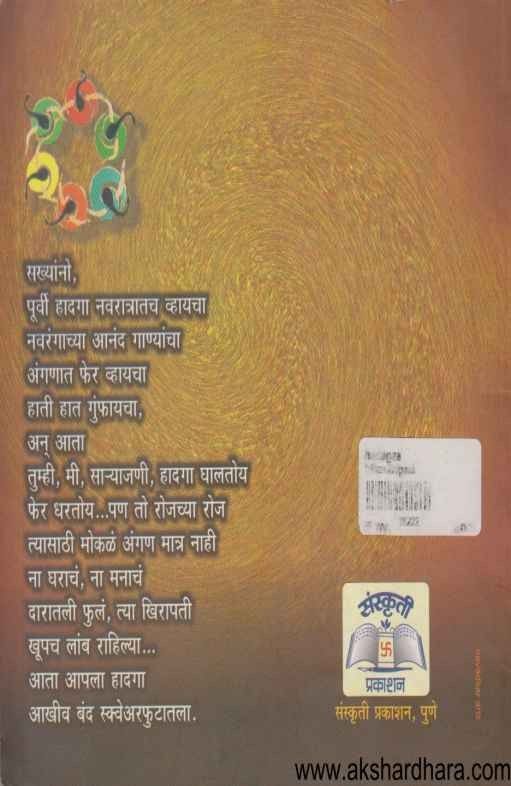 सख्यांनो,
पूर्वी हादगा नवरात्रातच व्हायचा
नवरंगाच्या आनंद गाण्यांचा
अंगणात फेर व्हायचा
हाती हात गुंफायचा,
अन् आता
तुम्ही, मी, साऱ्याजणी, हादगा घालतोय
फेर धरतोय...पण तो रोजच्या रोज
त्यासाठी मोकळं अंगण मात्र नाही
ना घराचं, ना मनाचं
दारातली फुलं, त्या खिरापती
खूपच लांब राहिल्या...
आता आपला हादगा
आखीव बंद स्क्वेअरफुटातला.
संस्कृती
प्रकाशन
संस्कृती प्रकाशन, पुणे
www.akshardhara.com